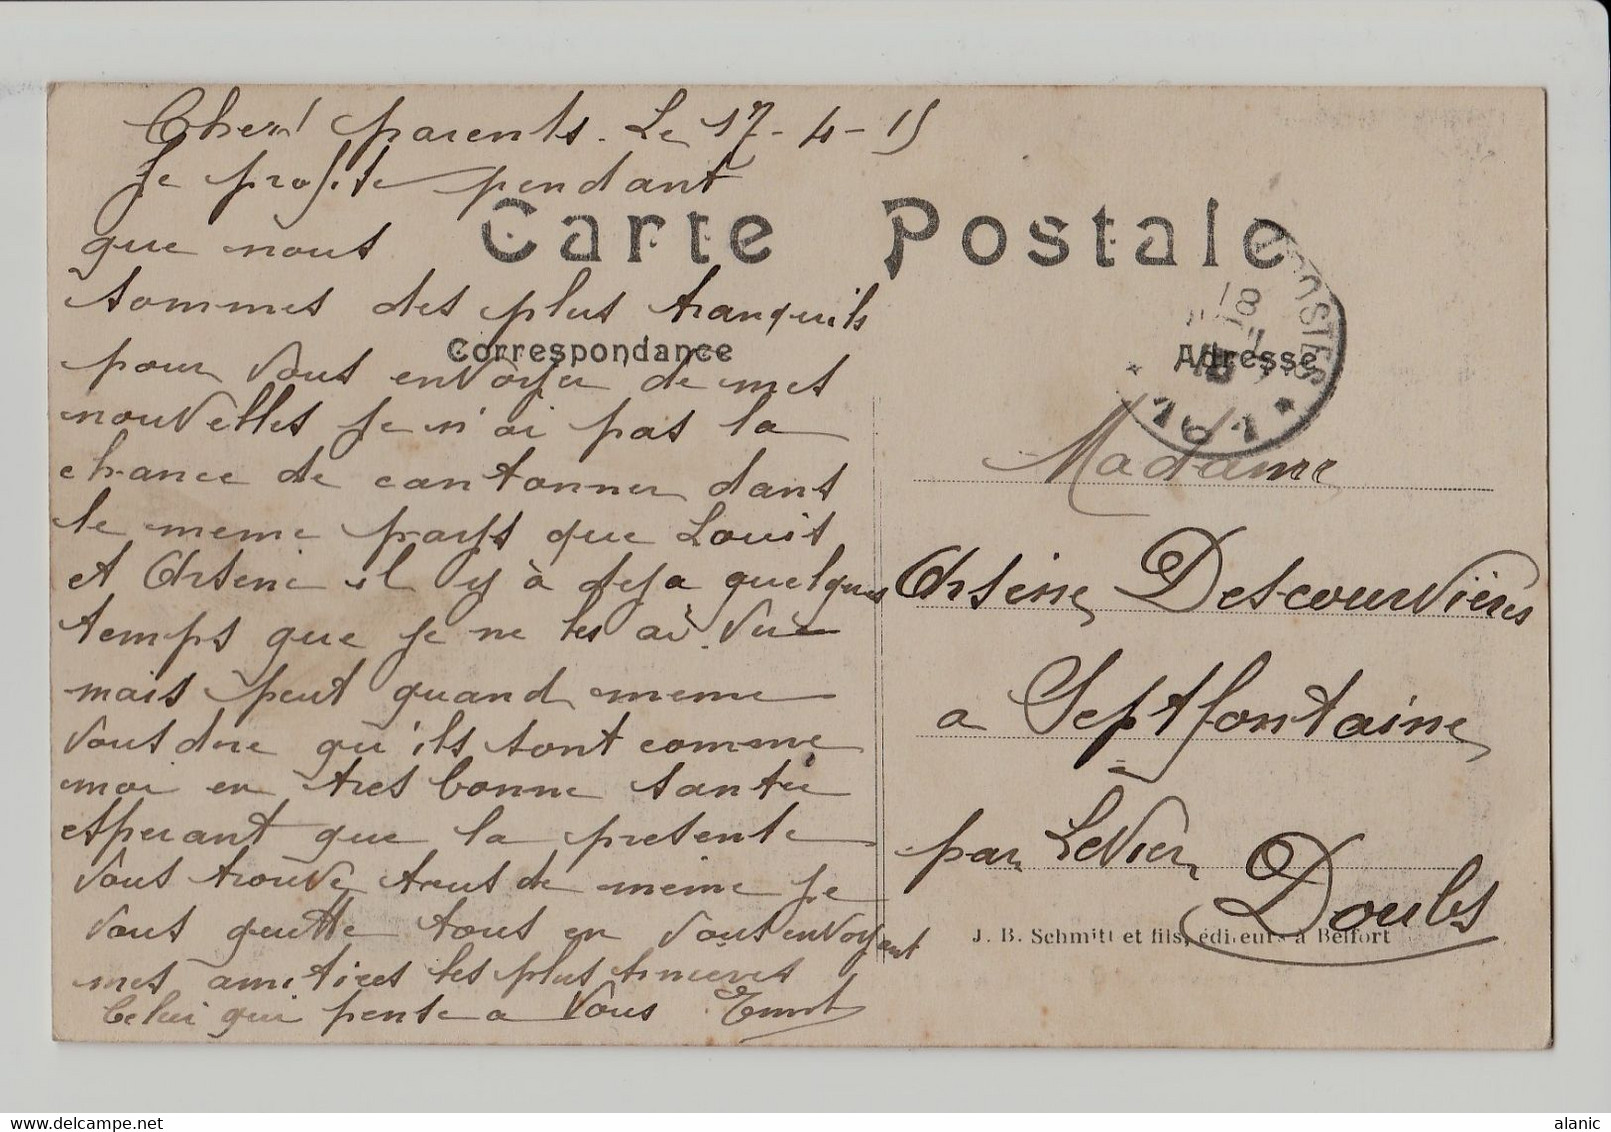 Chers parents. Le 17-4-15
Je profite pendant
que nous
Carte Postale
sommes des plus tranquils
Correspondance
pour vous envoyer de mes
nouvelles je n'ai pas la
chance de cantonner dans
le meme pays que Louis
et Arsene il y à deja quelques
temps que je ne les ai vue
mais peut quand meme
vous dire qu'ils sont comme
moi en tres bonne santée
esperant que la presente
vous trouve tous de meme je
vous quitte tous en vous envoyent
mes amitiees les plus sinceres
Celui qui pense a vous
18
POSTES
Adresse
Madame
Arsène Descourvières
a Septfontaine
par Levier
Doubs
J. B. Schmitt et fils, éditeurs à Belfort
alanic